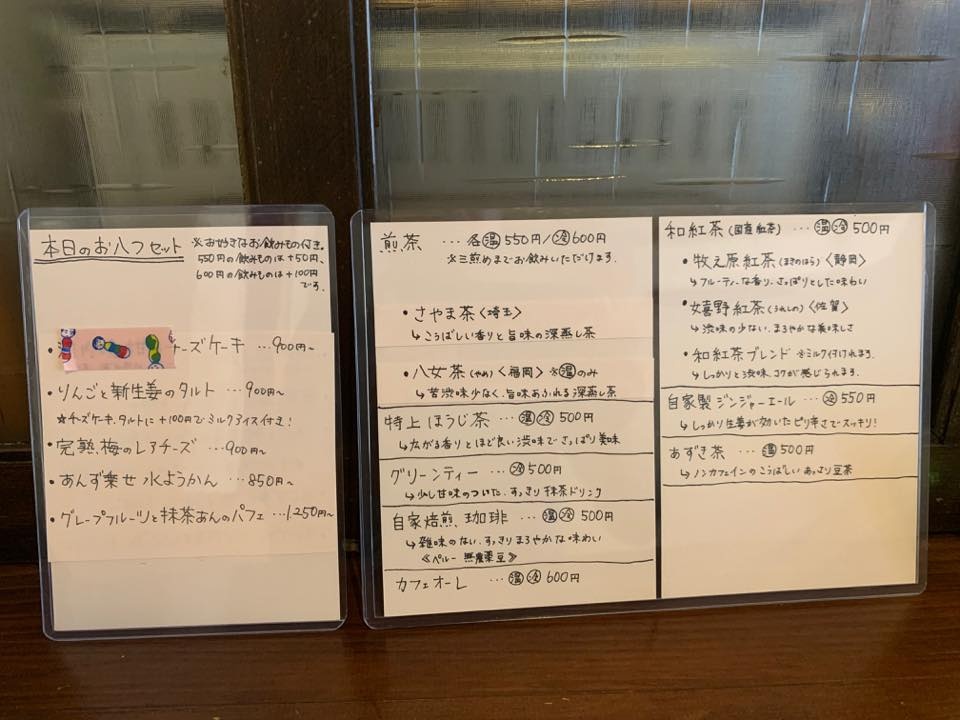 本日のお八つセット
※お好きなお飲みもの付き。
550円の飲みものは+50円、
600円の飲みものは+100円
です。
チーズケーキ …900円~
・りんごと新生姜のタルト …900円~
★チーズケーキ、タルトに+100円でミルクアイス付き!
・完熟梅のレアチーズ …900円~
・あんず乗せ 水ようかん …850円~
・グレープフルーツと抹茶あんのパフェ …1,250円~
煎茶 …各温550円/冷600円
※三煎めまでお飲みいただけます。
・さやま茶〈埼玉〉
↳こうばしい香りと旨味の深蒸し茶
・八女茶(やめ)〈福岡〉※温のみ
↳苦渋味少なく、旨味あふれる深蒸し茶
特上ほうじ茶 …温冷500円
↳広がる香りとほど良い渋味でさっぱり美味
グリーンティー …冷500円
↳少し甘味のついた、すっきり抹茶ドリンク
自家焙煎 珈琲 …温冷500円
↳雑味のない、すっきりまろやかな味わい
《ペルー 無農薬豆》
カフェオーレ …温冷600円
和紅茶(国産紅茶) …温冷500円
・牧之原紅茶(まきのはら)〈静岡〉
↳フルーティーな香り、さっぱりとした味わい
・嬉野紅茶(うれしの)〈佐賀〉
↳渋味の少ない、まろやかな美味しさ
・和紅茶ブレンド ※ミルク付けれます。
↳しっかりと渋味、コクが感じられます。
自家製 ジンジャーエール …冷550円
↳しっかり生姜が効いたピリ辛さでスッキリ!
あずき茶 …温500円
↳ノンカフェインのこうばしいあっさり豆茶